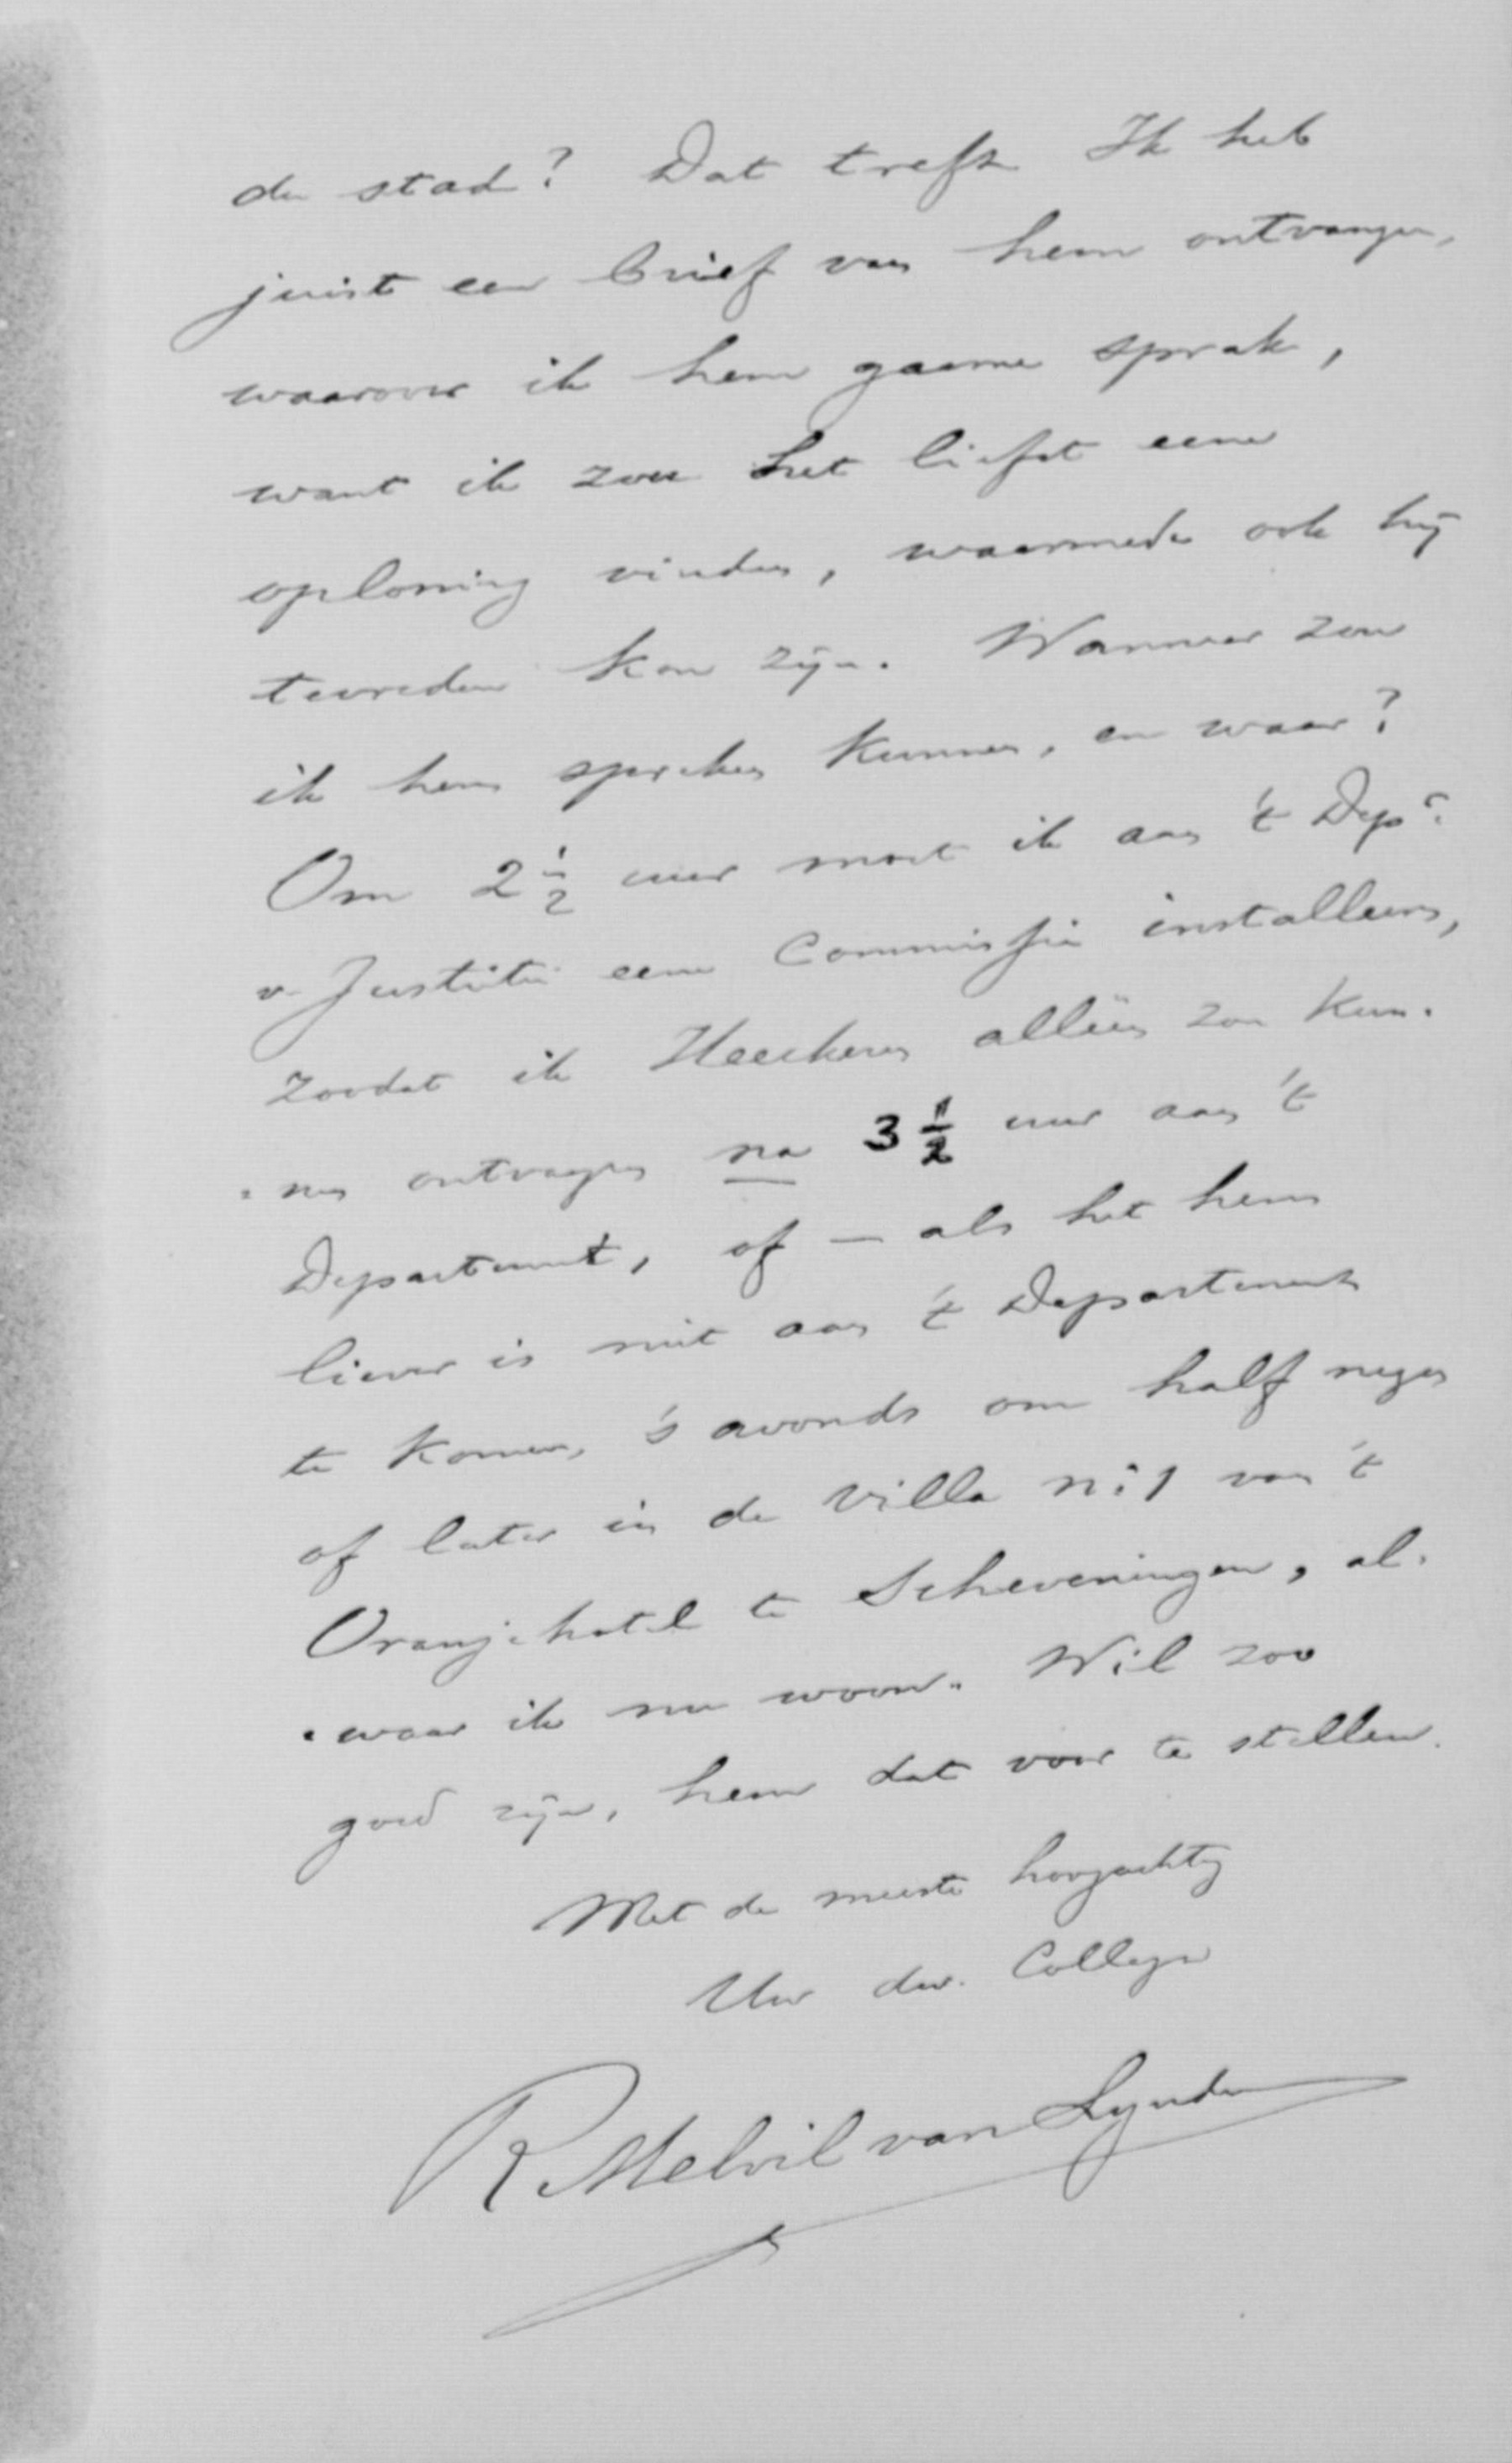 de stad? Dat treft Ik heb
juist een brief van hem ontvangen,
waarover ik hem gaarne sprak,
want ik zou het liefst eene
oplossing vinden, waarmede ook hij
tevreden kon zijn. Wanneer zou
ik hem spreken kunnen, en waar?
Om 2 1/2 uur moet ik aan 't Dept.
v. Justitie eene Commissie installeeren,
zoodat ik Heeckeren alléén zou kun-
-nen ontvangen na 3 1/2 uur aan 't
Departement, of — als het hem
liever is niet aan 't Departement
te komen, 's avonds om half negen
of later in de villa no. 1 van 't
Oranjehotel te Scheveningen, al-
-waar ik nu woon. Wil zoo
goed zijn, hem dat voor te stellen.
Met de meeste hoogachting
Uw dw. Collega
R. Melvil van Lynden